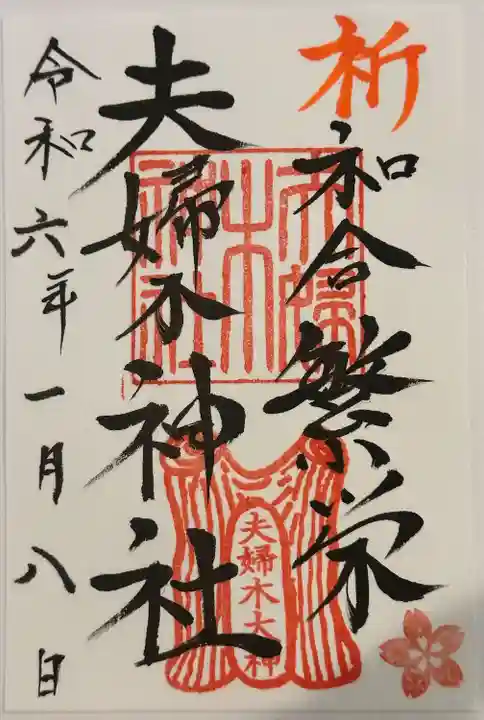 祈
和合繁栄
夫婦木神社
令和六年一月八日
夫婦木神社
夫婦木大神